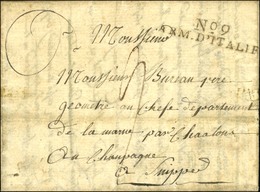 No 9
ARM. D'ITALIE
Monsieur
Monsieur Bureau pere
geometre au Chef departement
de la marne par Chaalons
en Champagne
a Suippe